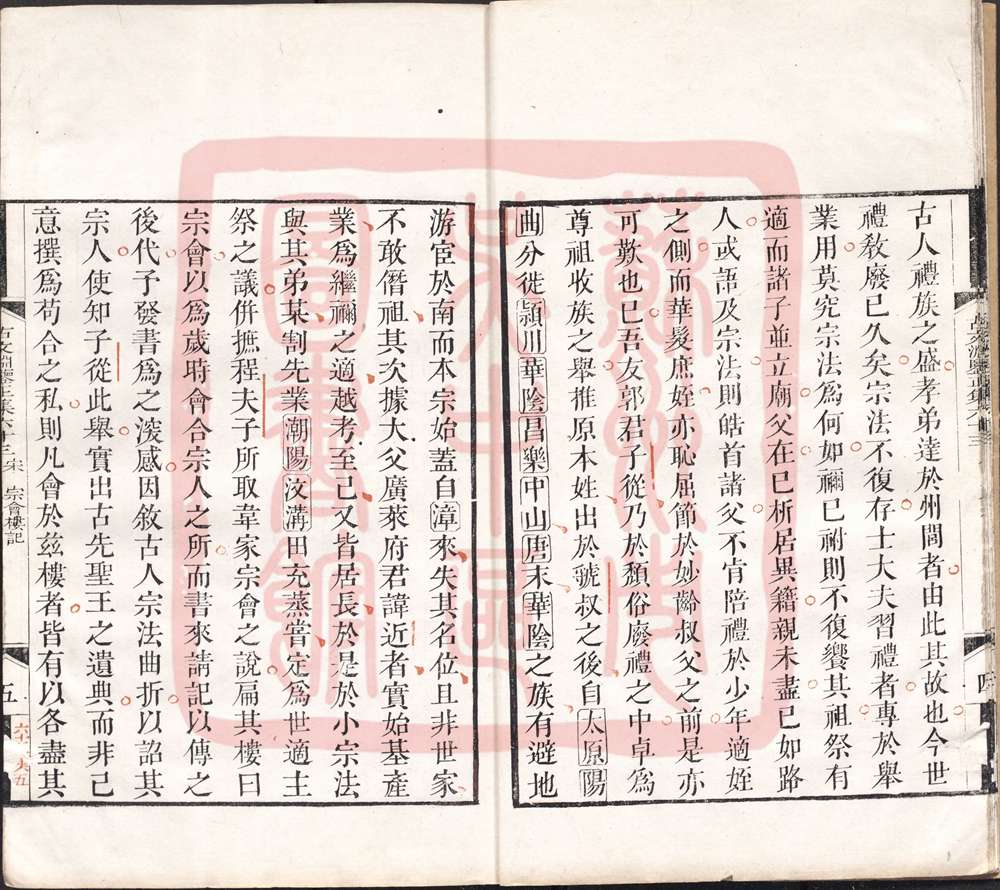 古人禮族之盛孝弟達於州閭者由此其故也今世
禮敎廢巳久矣宗法不復存士大夫習禮者專於舉
業用莫究宗法爲何如禰巳祔則不復饗其祖祭有
適而諸子並立廟父在巳析居異籍親未盡巳如路
人或語及宗法則皓首諸父不肯陪禮於少年適姪
之側而華髮庶姪亦恥屈節於妙齡叔父之前是亦
可歎也巳吾友郭君子從乃於頹俗廢禮之中卓爲
尊祖收族之舉推原本姓出於虢叔之後自太原陽
曲分徙潁川華陰昌樂中山唐末華陰之族有避地
游宦於南而本宗始蓋自漳來失其名位且非世家
不敢僭祖其次據大父廣萊府君諱近者實始基產
業爲繼禰之適越考至己又皆居長於是於小宗法
與其弟某割先業潮陽汶溝田充蒸嘗定爲世適主
祭之議併摭程夫子所取韋家宗會之說扁其樓曰
宗會以爲歲時會合宗人之所而書來請記以傳之
後代予發書爲之淩感因敘古人宗法曲折以詔其
宗人使知子從此舉實出古先聖王之遺典而非己
意撰爲苟合之私則凡會於兹樓者皆有以各盡其
宗會樓記
五